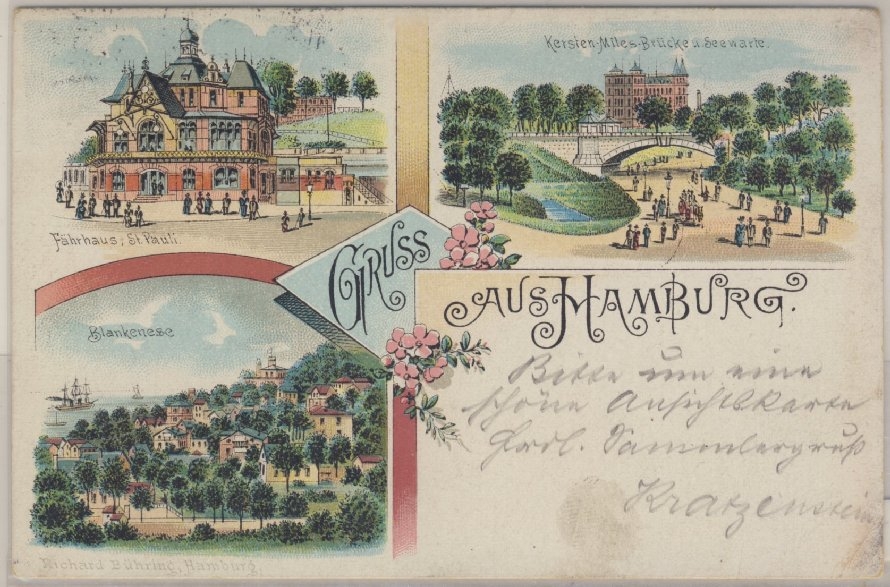 Kersten-Miles-Brücke u. Seewarte.
Fährhaus, St. Pauli.
GRUSS
AUS HAMBURG.
Blankenese
Bitte um eine
schöne Ansichtskarte
Frdl. Sammlergruß
Kratzenstein
Richard Bühring, Hamburg.